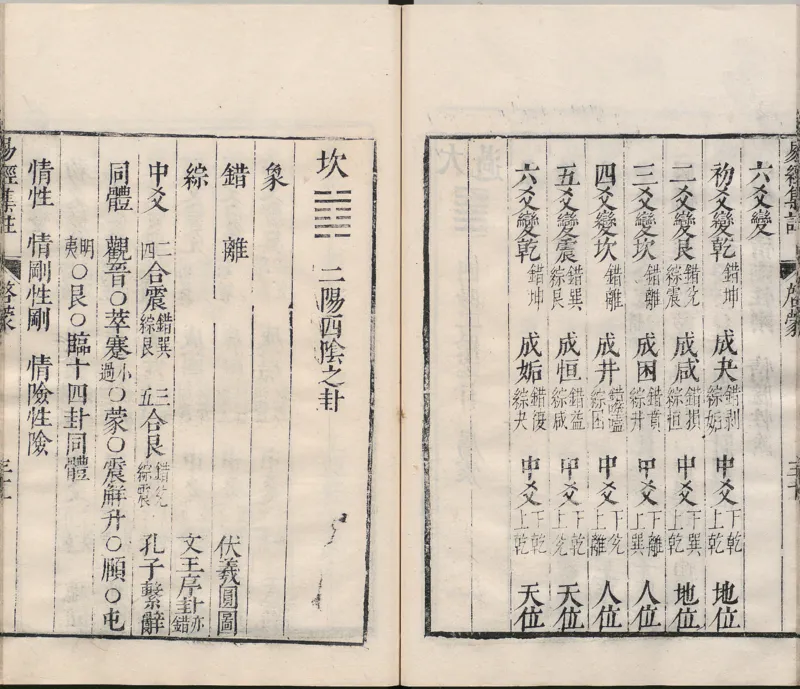 易經集註 啓蒙
六爻變
初爻變乾 錯坤 成夬 錯剝綜姤 中爻 下乾上乾 地位
二爻變艮 錯兌綜震 成咸 錯損綜恒 中爻 下巽上乾 地位
三爻變坎 錯離 成困 錯賁綜井 中爻 下離上巽 人位
四爻變坎 錯離 成井 錯噬嗑綜困 中爻 下兌上離 人位
五爻變震 錯巽綜艮 成恒 錯益綜咸 中爻 下乾上兌 天位
六爻變乾 錯坤 成姤 錯復綜夬 中爻 下乾上乾 天位
坎 ䷜ 二陽四陰之卦
象
錯 離 伏羲圓圖
綜 文王序卦亦錯
中爻 二四合震 錯巽綜艮 三五合艮 錯兌綜震 孔子繫辭
同體 觀晉○萃蹇小過○蒙○震解升○頤○屯
明夷○艮○臨十四卦同體
情性 情剛性剛 情險性險
易經集註 啓蒙